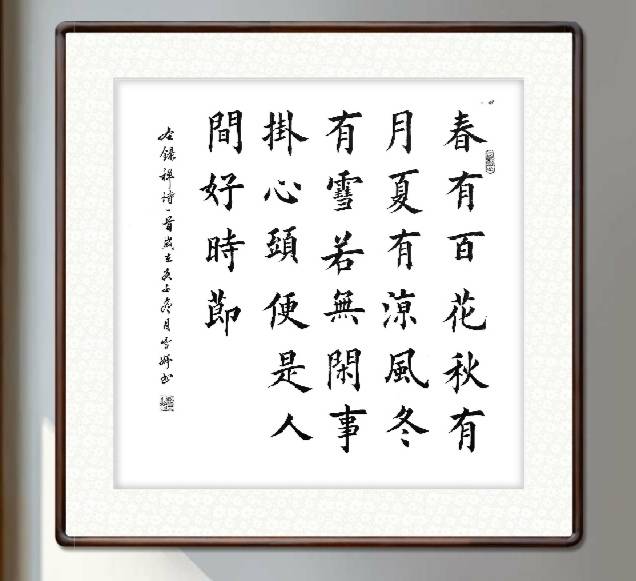 春有百花秋有
月夏有涼風冬
有雪若無閑事
掛心頭便是人
間好時節
右錄禪詩一首歲